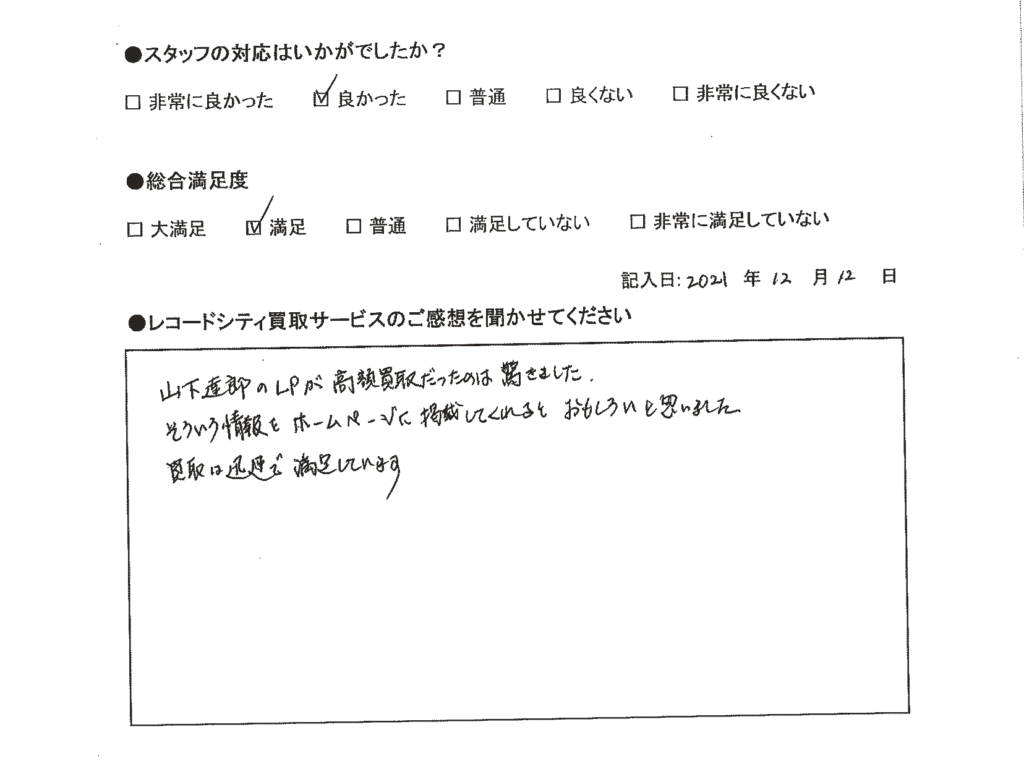 ●スタッフの対応はいかがでしたか？
□ 非常に良かった ☑ 良かった □ 普通 □ 良くない □ 非常に良くない
●総合満足度
□ 大満足 ☑ 満足 □ 普通 □ 満足していない □ 非常に満足していない
記入日: 2021 年 12 月 12 日
●レコードシティ買取サービスのご感想を聞かせてください
山下達郎のLPが高額買取だったのは驚きました.
そういう情報をホームページに掲載してくれるとおもしろいと思いました
買取は迅速で満足しています